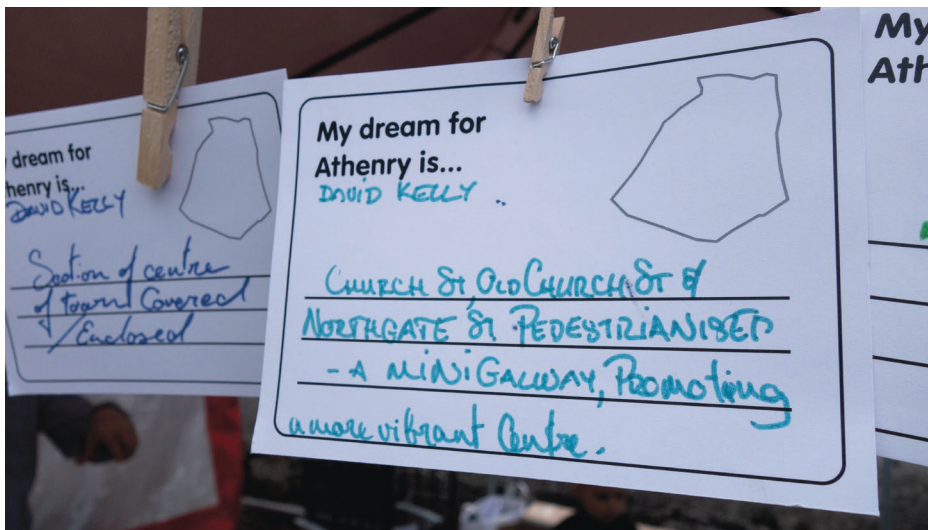 dream for
henry is...
DAVID KELLY
Section of centre
of town Covered
/Enclosed
My dream for
Athenry is...
DAVID KELLY ..
CHURCH ST, OLD CHURCH ST &
NORTHGATE ST PEDESTRIANISED
- A MINI GALWAY, Promoting
a more vibrant Centre.
My
Ath